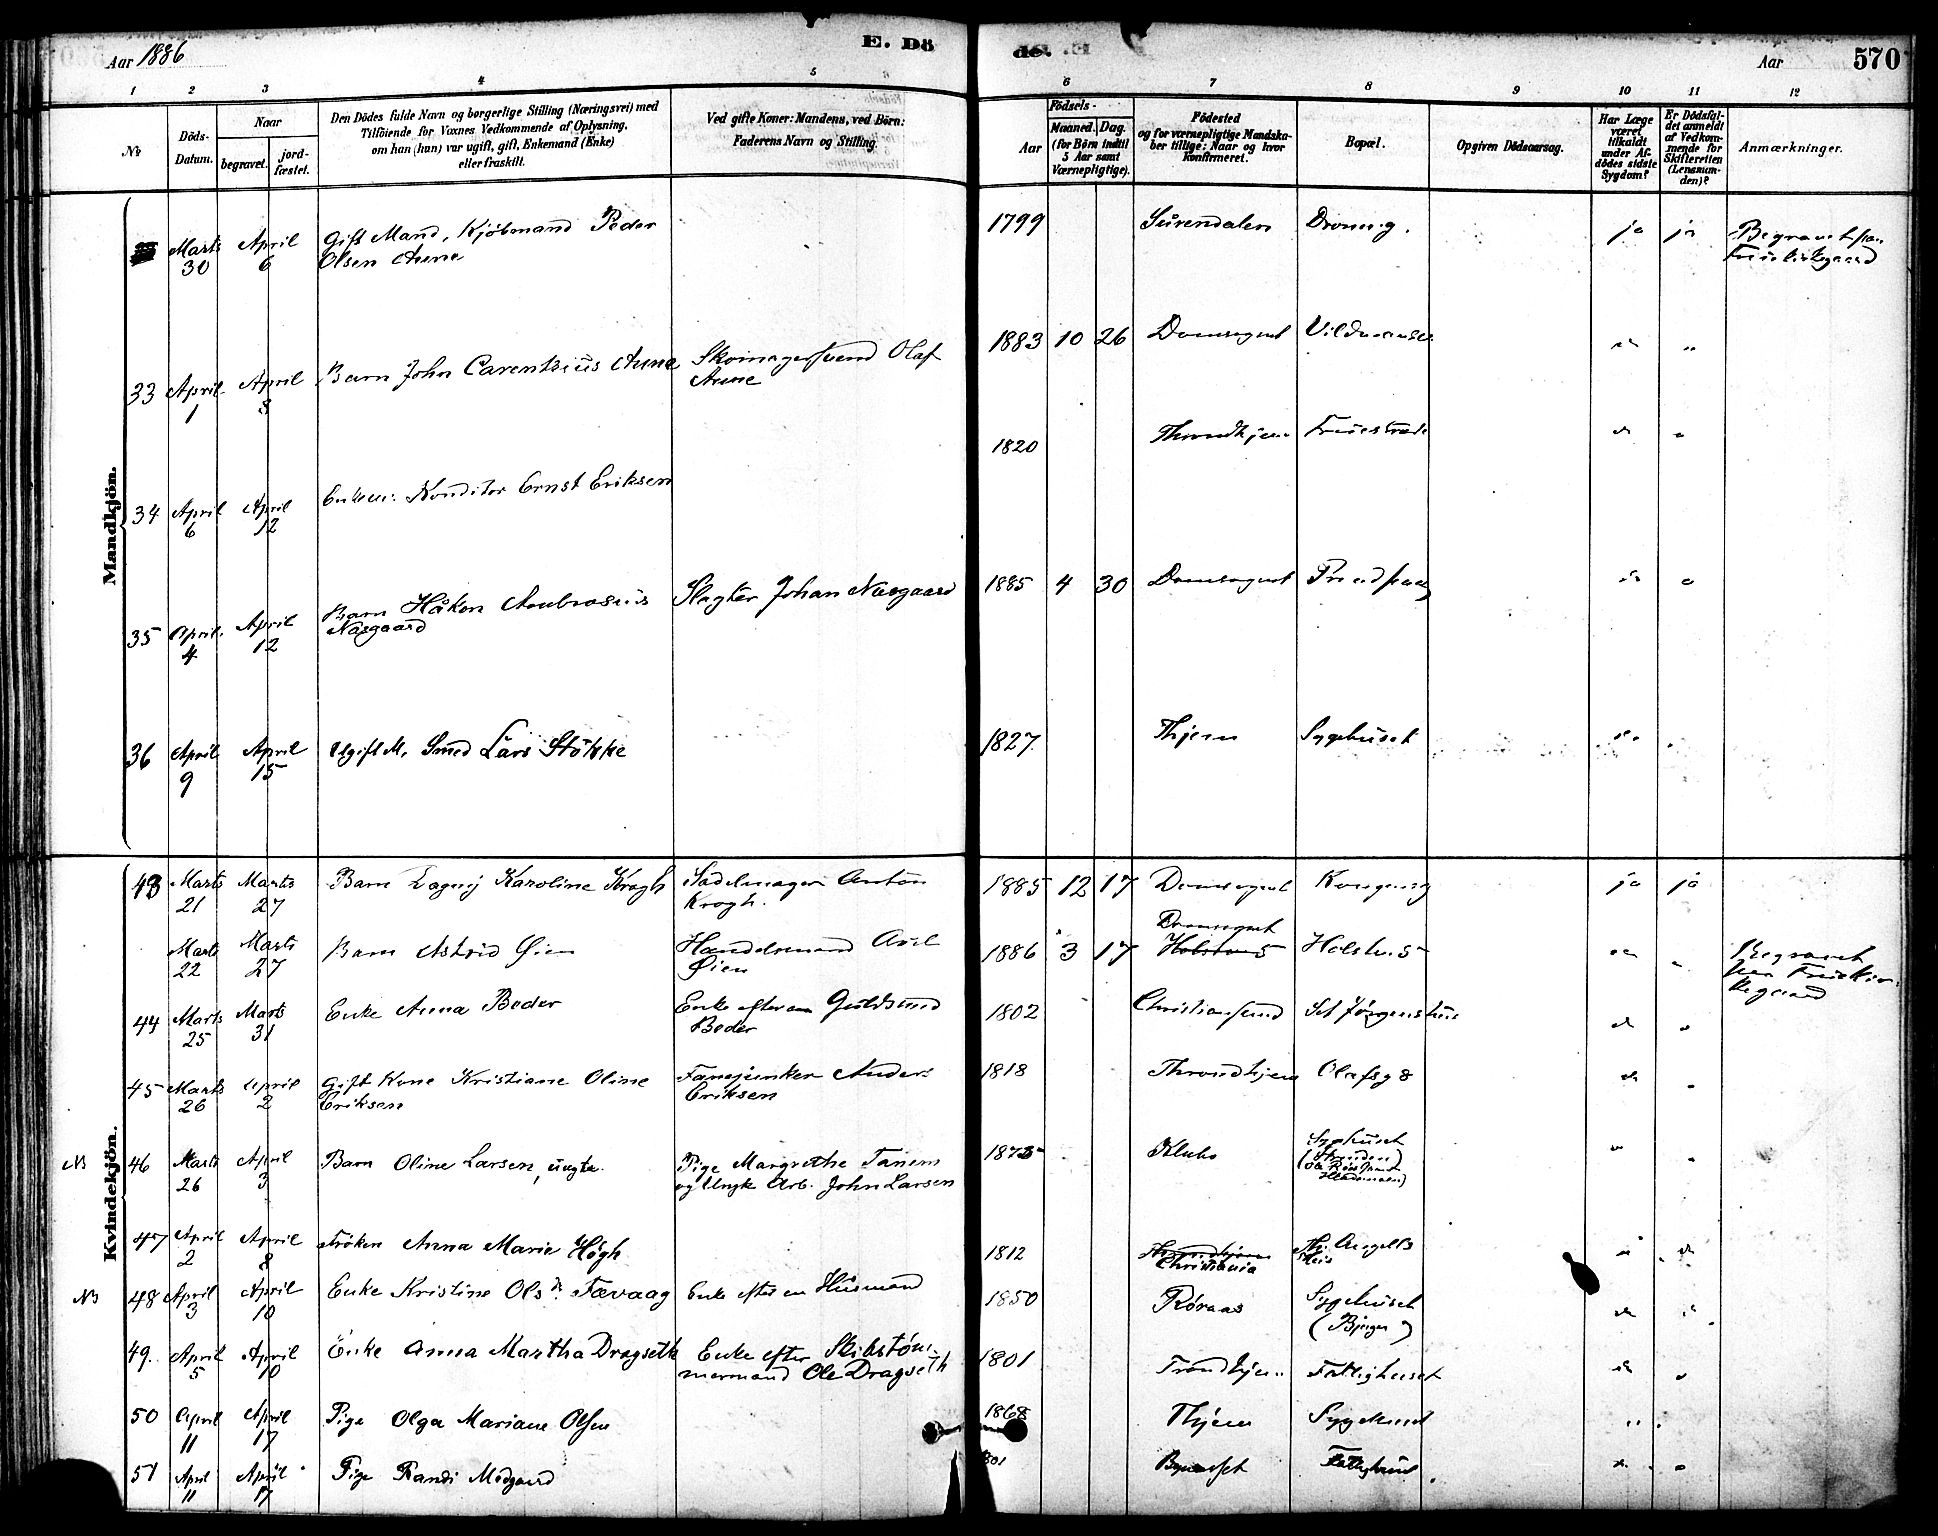 Aar 1886
E. Dö
de. E.
Aar
570
1 2 3 4 5 6 7 8 9 10 11 12
No
Döds-Datum.
Naar
begravet.
jord-fæstet.
Den Dödes fulde Navn og borgerlige Stilling (Næringsvei) med
Tilföiende for Voxnes Vedkommende af Oplysning,
om han (hun) var ugift, gift, Enkemand (Enke)
eller fraskilt.
Ved gifte Koner: Mandens, ved Börn:
Faderens Navn og Stilling.
Födsels-
Aar
Maaned. Dag.
(for Börn indtil
5 Aar samt
Værnepligtige).
Födested
og for værnepligtige Mandska-
ber tillige: Naar og hvor
konfirmeret.
Bopæl.
Opgiven Dödsaarsag.
Har Læge
været
tilkaldt
under Af-
dödes sidste
Sygdom?
Er Dödsfal-
det anmeldt
af Vedkom-
mende for
Skifteretten
(Lensman-
den)?
Anmærkninger.
Mandkjön.
Marts 30 April 6 Gift Mand, Kjøbmand Peder
Olsen Aune
1799 Surendalen Dronng. ja ja Begravet paa
Fruekirkegaard
33 April 1 April 8 Barn John Carentzius Aune Skomagersvend Olaf
Aune
1883 10 26 Domsognet Vildmanden
34 April 6 April 12 Enkem: Konditor Ernst Eriksen
1820 Throndhjem Fruestræde
35 April 4 April 12 Barn Håkon Ambrosius
Næsgaard
Slagter Johan Næsgaard
1885 4 30 Domsognet
36 April 9 April 15 Ugift M. Smed Lars Støkke
1827 Thjem Sygehuset
Kvindekjön.
43 Marts 21 Marts 27 Barn Dagny Karoline Krogh Sadelmager Anton
Krogh.
1885 12 17 Domsognet Kongensg ja ja
Marts 22 Marts 27 Barn Astrid Øien Handelsmand Axel
Øien
1886 3 17 Domsognet
Holstens Holstens Begravet
paa Fruekir-
kegaard
44 Marts 25 Marts 31 Enke Anna Beder Enke efter en Guldsmed
Beder
1802 Christiansund Sct Jørgenshus
45 Marts 26 April 2 Gift Kone Kristiane Oline
Eriksen
Fanejunker Anders
Eriksen
1818 Throndhjem Olafsg 8
46 Marts 26 April 3 Barn Oline Larsen, uægte. Pige Margrethe Tanem
og Ungk Arb. John Larsen
1875 Klæbo Sygehuset
47 April 2 April 8 Frøken Anna Marie Høgh
1812 Throndhjem
Christiania Th. Angells
Hus
48 April 3 April 10 Enke Kristine Olsdr. Tævaag Enke efter en Husmand
1850 Røraas Sygehuset
49. April 5 April 10 Enke Anna Martha Dragseth Enke efter Skibstøm-
mermand Ole Dragseth
1801 Trondhjem Fattighuset
50 April 11 April 17 Pige Olga Mariane Olsen
1868 Thjem Sygehuset
51 April 11 April 17 Pige Randi Modgaard
1801 Bynesset Fattighuset